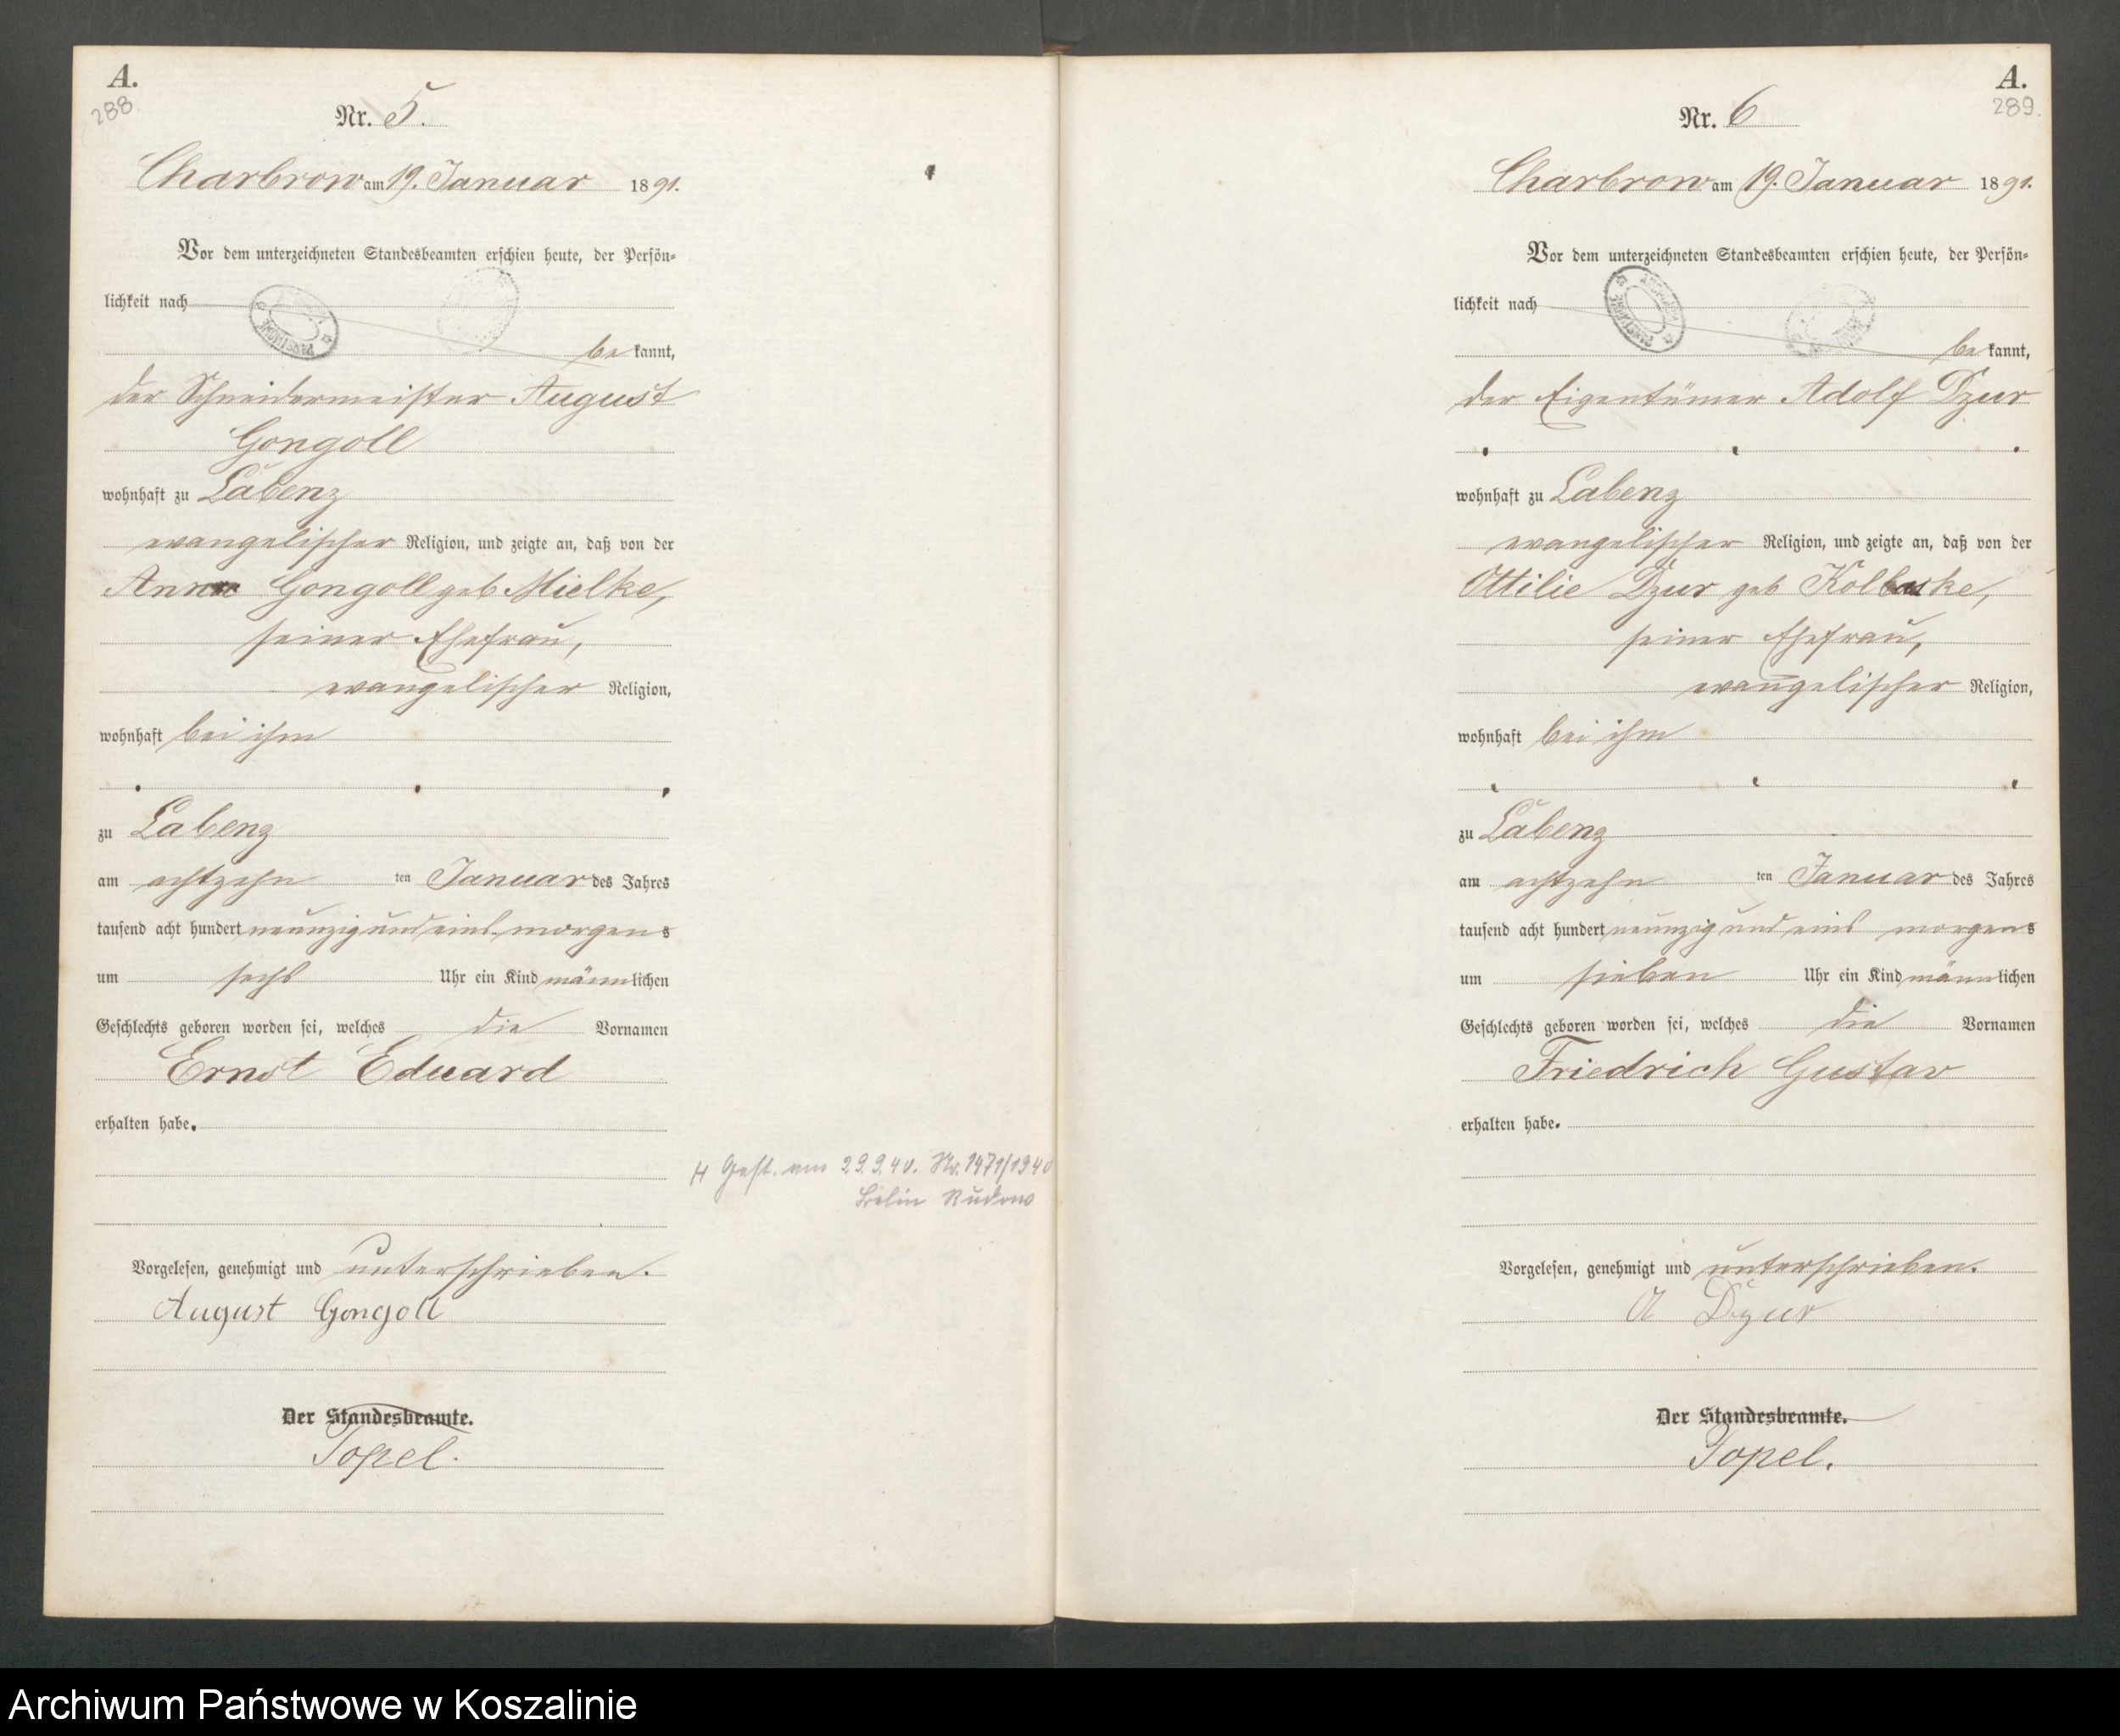 A.
288
Nr. 5.
Charbrow am 19. Januar 1891.
Vor dem unterzeichneten Standesbeamten erschien heute, der Persön-
lichkeit nach
be kannt,
der Schneidermeister August
Gongoll
wohnhaft zu Labenz
evangelischer Religion, und zeigte an, daß von der
Anna Gongoll geb Mielke,
seiner Ehefrau,
evangelischer Religion,
wohnhaft bei ihm
zu Labenz
am achtzehn ten Januar des Jahres
tausend acht hundert neunzig und eins morgens
um sechs Uhr ein Kind männlichen
Geschlechts geboren worden sei, welches die Vornamen
Ernst Eduard
erhalten habe.
H Gest. am 29.9.40. Nr. 1471/1940
Berlin Rudow
Vorgelesen, genehmigt und unterschrieben.
August Gongoll
Der Standesbeamte.
Topel.
A.
289.
Nr. 6
Charbrow am 19. Januar 1891.
Vor dem unterzeichneten Standesbeamten erschien heute, der Persön-
lichkeit nach
be kannt,
der Eigentümer Adolf Dzur
wohnhaft zu Labenz
evangelischer Religion, und zeigte an, daß von der
Ottilie Dzur geb
seiner Ehefrau,
evangelischer Religion,
wohnhaft bei ihm
zu Labenz
am achtzehn ten Januar des Jahres
tausend acht hundert neunzig und eins morgens
um sieben Uhr ein Kind männlichen
Geschlechts geboren worden sei, welches die Vornamen
Friedrich Gustav
erhalten habe.
Vorgelesen, genehmigt und unterschrieben.
A Dzur
Der Standesbeamte.
Topel.
Archiwum Państwowe w Koszalinie